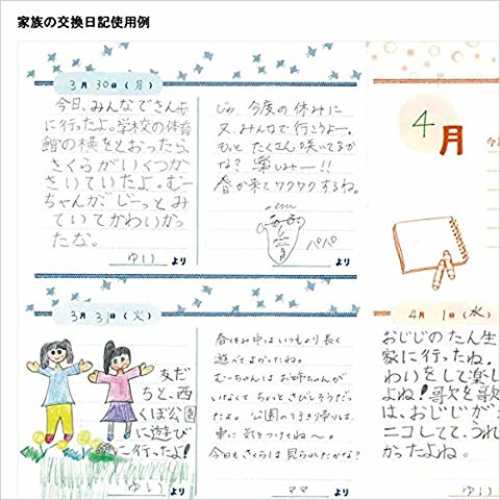 家族の交換日記使用例
3月30日(月)
今日、みんなでさんぽ
に行ったよ。学校の体育
館の横をとおったら
さくらがいくつか
さいていたよ。むー
ちゃんがじーっとみ
ていてかわいかっ
たな。
ゆいより
じゃ、今度の休みに
又、みんなで行こうよー。
もっとたくさん咲いてるか
な?楽しみー!!
春が来てワクワクするね。
パパより
3月31日(火)
友だ
ちと、西
くぼ公園
に遊び
に行ったよ!
ゆいより
春休み中はいつもより長く
遊べてよかったね。
むーちゃんはお姉ちゃんが
いなくてちょっとさびしそうだっ
たよ。公園の行き帰りは、
車に気をつけてね〜。
今日もさくらは見られたかな?
ママより
4月
4月1日(水)
おじじのたん生
家に行ったね。
わいをして楽し
よね!歌を歌
は、おじじが
ニコしてて、うれ
かったよね。